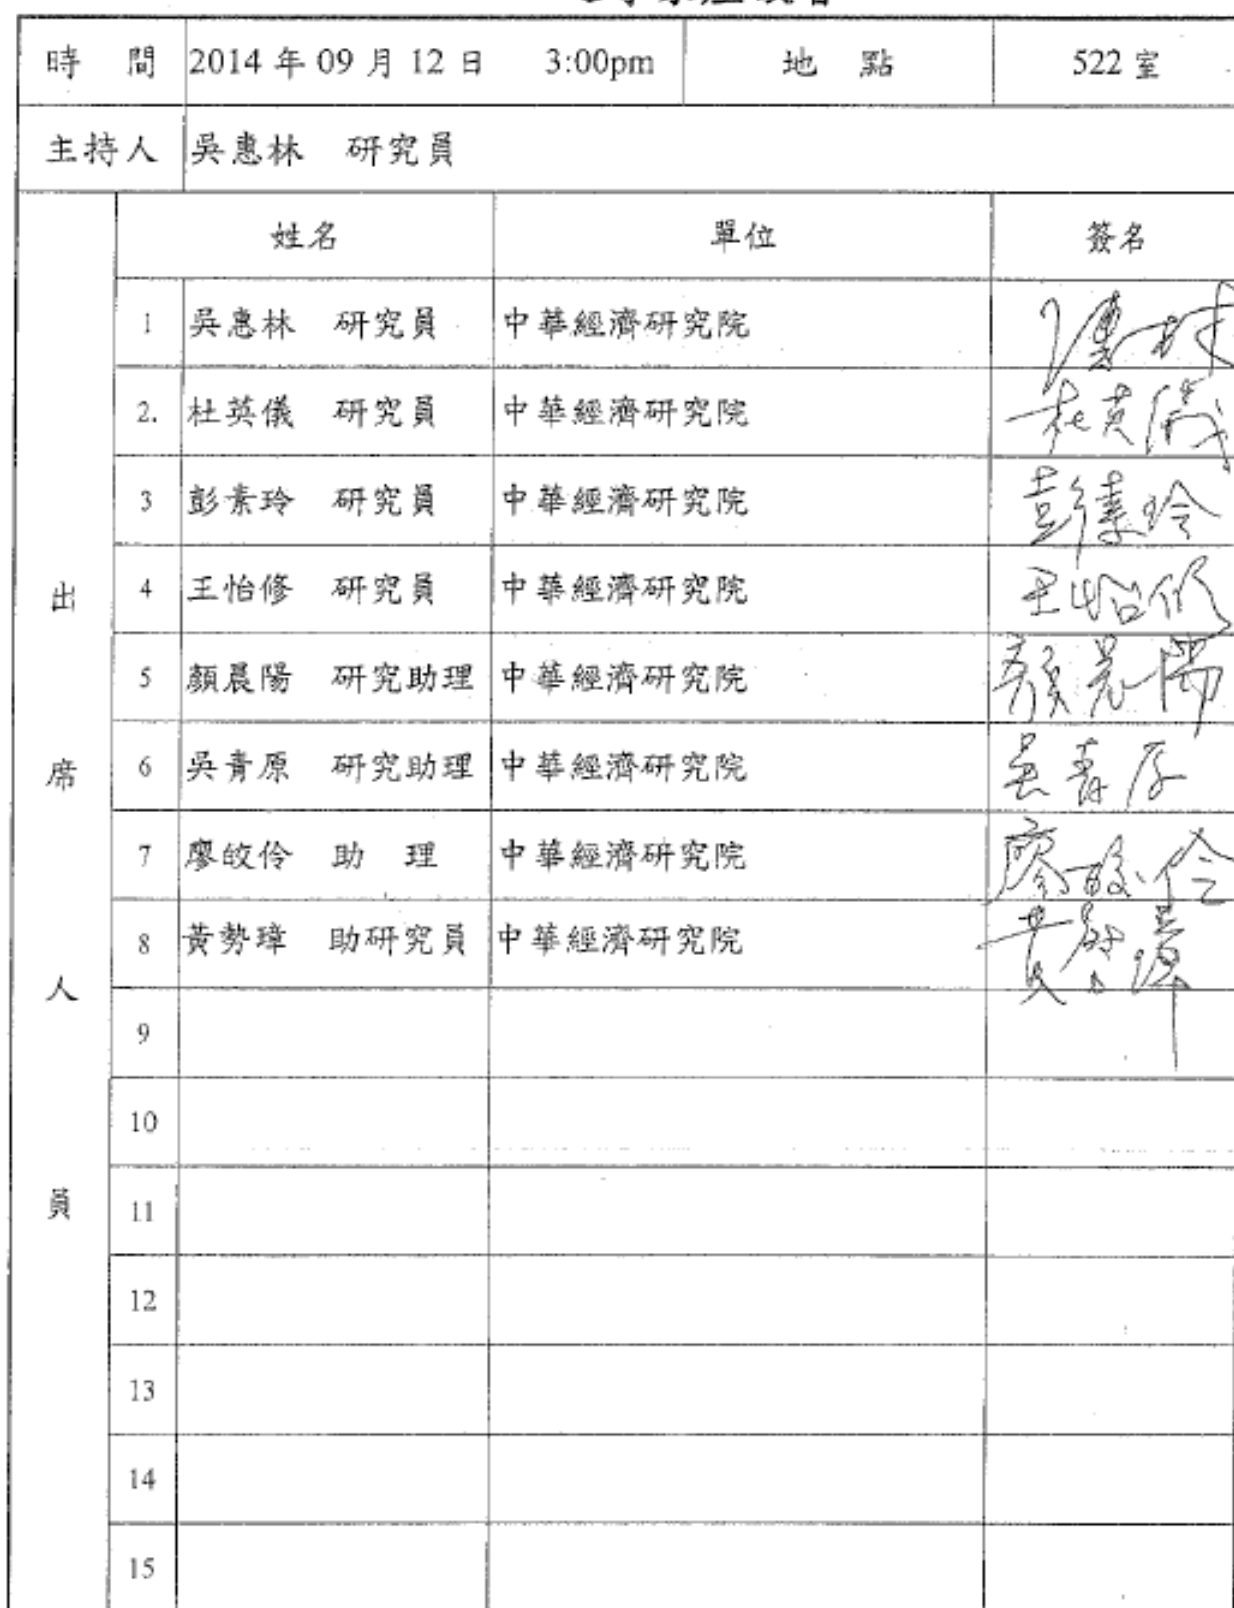 時 間 2014 年 09 月 12 日 3:00pm 地 點 522 室
主持人 吳惠林 研究員
姓名 單位 簽名
1 吳惠林 研究員 中華經濟研究院 惠林
2. 杜英儀 研究員 中華經濟研究院 杜英儀
3 彭素玲 研究員 中華經濟研究院 彭素玲
4 王怡修 研究員 中華經濟研究院 王怡修
5 顏晨陽 研究助理 中華經濟研究院 顏晨陽
6 吳青原 研究助理 中華經濟研究院 吳青原
7 廖皎伶 助 理 中華經濟研究院 廖皎伶
8 黃勢璋 助研究員 中華經濟研究院 黃勢璋
9
10
11
12
13
14
15
出席人員